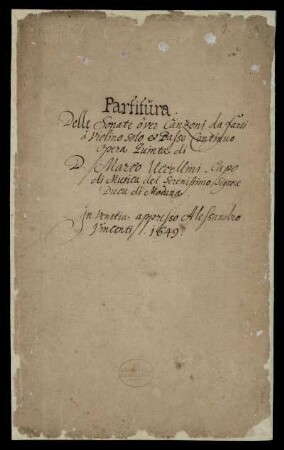 Partitura
Delle Sonate over Canzoni da farsi
à Violino solo & Basso Continuo
Opera Quinta di
D. Marco Uccellini. Capo
di Musica del Serenissimo Signor
Duca di Modena
in Venetia appresso Alessandro
Vincenti 1649